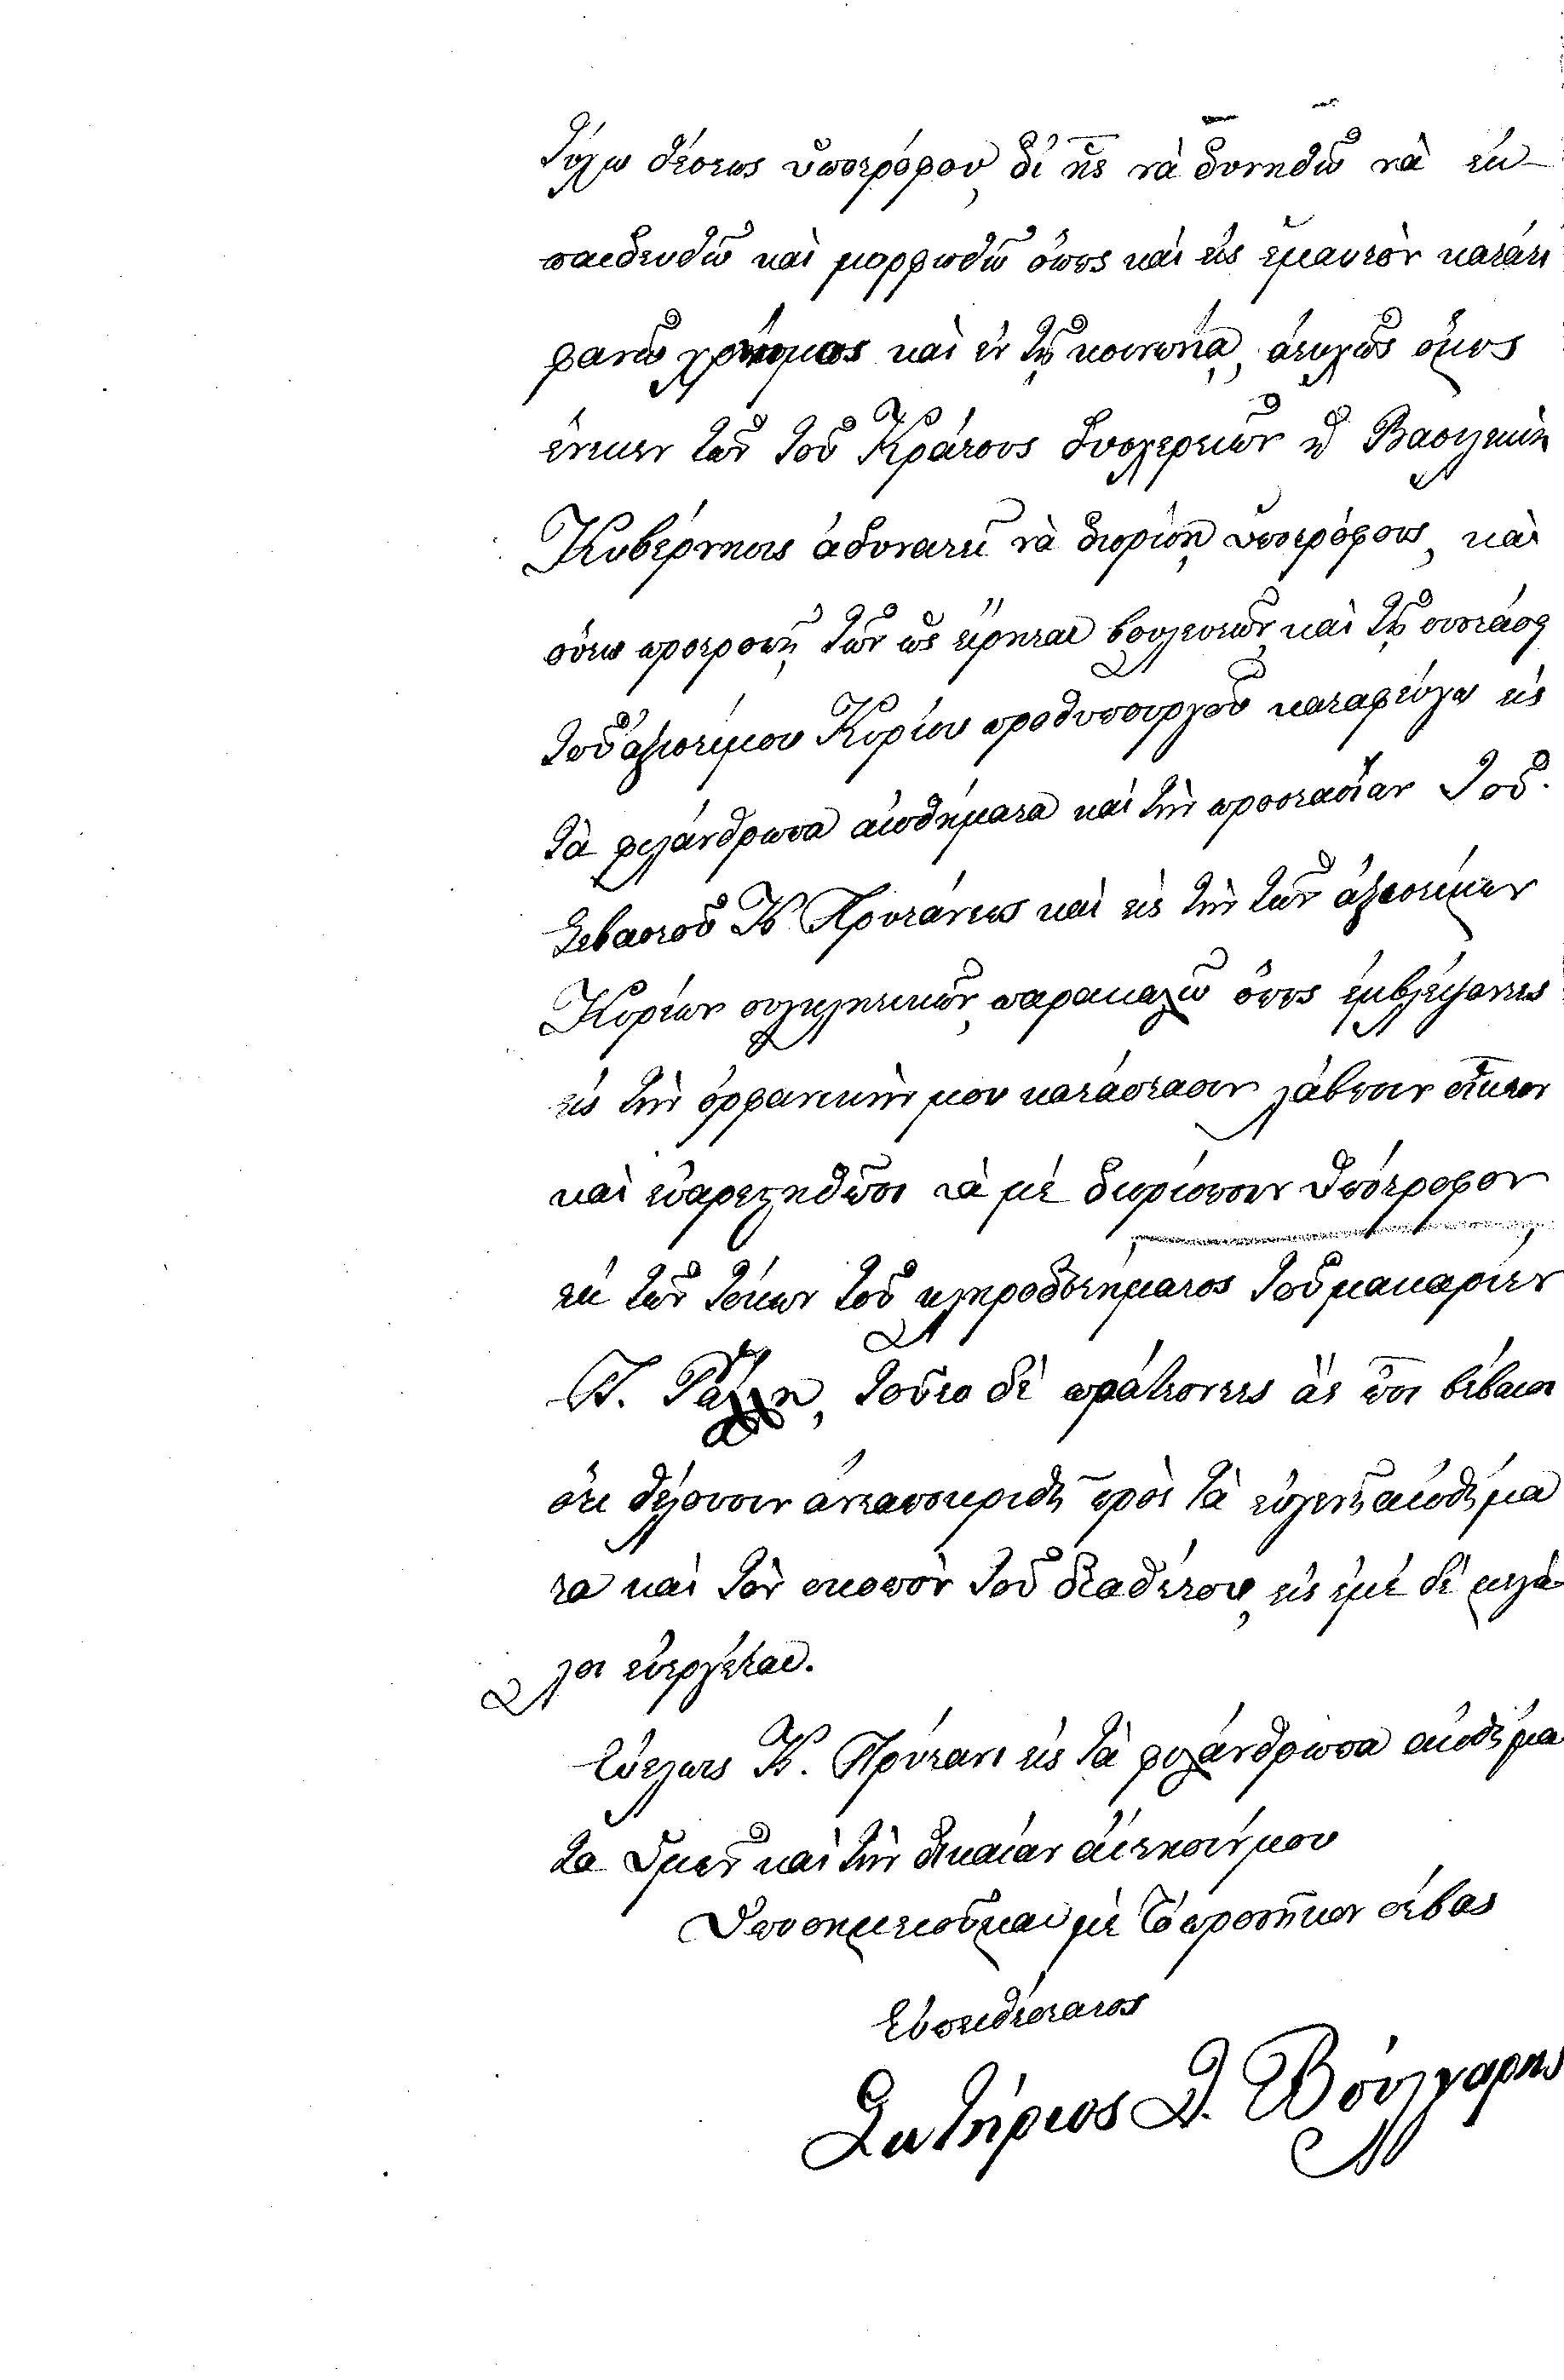 τύχω θέσεως ὑποτρόφου, δι' ἧς νὰ δυνηθῶ νὰ ἐκ-
παιδευθῶ καὶ μορφωθῶ ὅπως καὶ εἰς ἐμαυτὸν κατάτι
φανῶ χρήσιμος καὶ ἐν τῇ κοινωνίᾳ, ἀτυχῶς ὅμως
ἕνεκεν τῶν τοῦ Κράτους δυσχερειῶν ἡ Βασιλικὴ
Κυβέρνησις ἀδυνατεῖ νὰ διορίσῃ ὑποτρόφους, καὶ
οὕτω προτροπῇ τῶν ὡς εἴρηται βουλευτῶν, καὶ τῇ συστάσει
τοῦ ἀξιοτίμου Κυρίου πρωθυπουργοῦ καταφεύγω εἰς
τὰ φιλάνθρωπα αἰσθήματα καὶ τὴν προστασίαν τοῦ
Σεβαστοῦ Κ Πρυτάνεως καὶ εἰς τὴν τῶν ἀξιοτίμων
Κυρίων συγκλητικῶν, παρακαλῶ ὅπως ἐμβλέψαντες
εἰς τὴν ὀρφανικήν μου κατάστασιν λάβωσιν οἶκτον
καὶ εὐαρεστηθῶσι νὰ μὲ διορίσωσιν ὑπότροφον
ἐκ τῶν τόκων τοῦ κληροδοτήματος τοῦ μακαρίτου
Γ. Ράλλη, τοῦτο δὲ πράττοντες ἂς ὦσι βέβαιοι
ὅτι θέλουσιν ἀνταποκριθῆ πρὸς τὰ εὐγενῆ αἰσθήμα
τα καὶ τὸν σκοπὸν τοῦ διαθέτου, εἰς ἐμὲ δὲ μεγά
λοι εὐεργέται.
Εὔελπις Κ. Πρύτανι εἰς τὰ φιλάνθρωπα αἰσθήμα
τα ὑμῶν καὶ τὴν δικαίαν αἴτησίν μου
Ὑποσημειοῦμαι μὲ τὸ προσῆκον σέβας
Εὐπειθέστατος
Σωτήριος Δ. Βούλγαρης